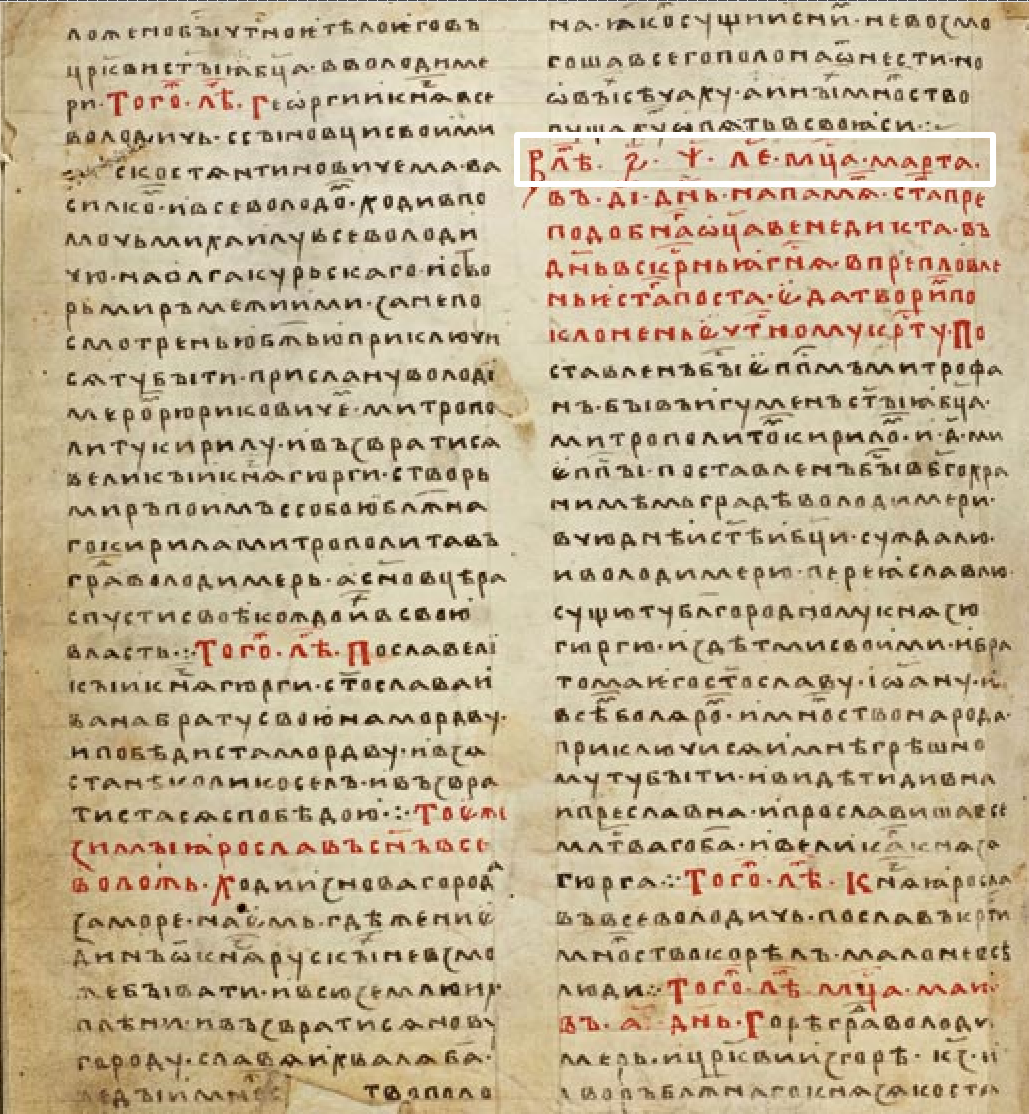 ложенобꙑчтⷭ҇ноѥтѣлоѥговъ
цр҃квист҃ꙑꙗбц҃а·вволодиме
ри·Тогоⷤ·лѣⷮ·Геѡргиикн҃ѧвсе
володичь·ссꙑновцисвоими
скостантиновичема·ва
силкоⷨ·ивсеволодоⷨ·ходивпо
мочьмихаилувсеволоди
чю·наѡлгакурьскаго·иство
рьмиръмежиими·занепо
смотреньюбж҃ьюприключи
сѧтубꙑти·прислануволоди
меромⷨрюриковичеⷨ·митропо
литукирилу·ивъзвратисѧ
великꙑикнѧⷥгюрги·створь
миръпоимъссобоюблж҃на
гокириламитрополитавъ
граⷣволодимерь·асн҃овцѣра
спустисвоѣкождоивсвою
власть·:·Тогоⷤ·лѣⷮ·Пославелі
кꙑикнѧⷥгюрги·ст҃ославаи
ванабратусвоюнамордву·
ипобѣдистамордву·ивзѧ
станѣколикоселъ·ивъзвра
тистасѧспобѣдою·:·Тоѥж
зимꙑꙗрославъсн҃ъвсе
воложь·Ходиизновагороⷣ
заморе·наѥмь·гдѣжениѥ
динъѿкнѧⷥрускꙑневзмо
жебꙑвати·ивсюземлюих
плѣни·ивъзвратисѧнову
городу·славѧихвалѧба·
твополо
на·ꙗкосущиисни·невозмо
гошавсегополонаѿнести·но
ѡвꙑсѣчаху·аинꙑмножство
пущахуѡпѧтьвсвоꙗси·:·
Влѣⷮ·҂ѕ·ѱ·ле·мцⷭ҇а·марта·
въ·ді·дн҃ь·напамѧⷮ·ст҃апре
подобнаⷢѿцавенедикта·въ
дн҃ьвскрⷭ҇ньꙗгнѧ·впрепловле
ньест҃апоста·ѥдатворипо
клоненьѥчтⷭ҇номукрⷭ҇ту·По
ставленъбꙑⷭ҇ѥппⷭ҇мъмитрофа
нъ·бꙑвъигуменъст҃ꙑꙗбц҃а·
митрополитоⷨкириломⷨ·и·д҃·ми
ѥппⷭ҇ꙑ·поставленъбꙑⷭ҇вбг҃охра
нимѣмьградѣволодимери·
вчюднѣист҃ѣибц҃и·суждалю·
иволодимерю·переꙗславлю·
сущютублг҃ородномукнѧзю
гюргю·издѣтмисвоими·ибра
томаѥгост҃ославу·іѡану·и
всѣⷨболꙗроⷨ·имножствонарода·
приключисѧимнѣгрѣшно
мутубꙑти·ивидѣтидивна
ипреславна·ипрославишавсе
млⷭ҇тваго·ба·ивеликаⷢкнѧзѧ
гюргѧ·:·Тогоⷤ·лѣⷮ·Кнѧⷥꙗросла
въвсеволодичь·пославъкрⷭ҇ти
множствокорѣлъ·маloневсѣ
люди·:·Тогоⷤ·лѣⷮмцⷭ҇а·маи·
въ·аі·днь·Горѣграⷣволоди
мерь·ицр҃квииизгорѣ·кз·и
дворъблж҃наⷢгокнѧзѧкоста